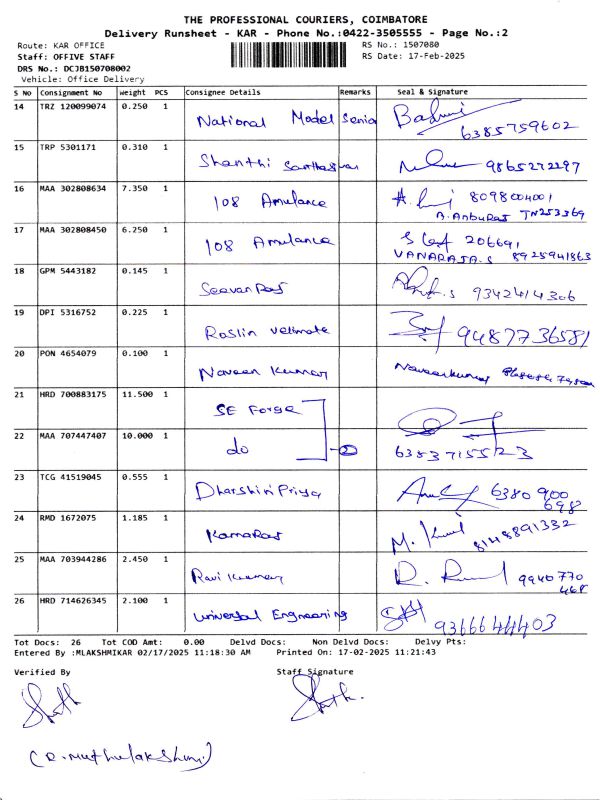 THE PROFESSIONAL COURIERS, COIMBATORE
Delivery Runsheet - KAR - Phone No.:0422-3505555 - Page No.:2
Route: KAR OFFICE
RS No.: 1507080
Staff: OFFIVE STAFF
RS Date: 17-Feb-2025
DRS No.: DCJB150708002
Vehicle: Office Delivery
S No Consignment No Weight PCS Consignee Details Remarks Seal & Signature
14 TRZ 120099074 0.250 1 National Model Senior 6385759602
15 TRP 5301171 0.310 1 Shanthi 9865272297
16 MAA 302808634 7.350 1 108 Amulance 8098004001
A.Anburaj TN253369
17 MAA 302808450 6.250 1 108 Amulance 206691
VANARAJA.S 8925941863
18 GPM 5443182 0.145 1 Seevan Raj 9342414306
19 DPI 5316752 0.225 1 Roslin velimate 9487736581
20 PON 4654079 0.100 1 Naveen Kumar Naveenkumar
21 HRD 700883175 11.500 1 SE Forge
22 MAA 707447407 10.000 1 do 2 6383715523
23 TCG 41519045 0.555 1 Dharshini Priya 6380 900
698
24 RMD 1672075 1.185 1 Kamaraj M. 8148891332
25 MAA 703944286 2.450 1 Ravi Kumar R. 9940770
468
26 HRD 714626345 2.100 1 Universal Engineering 9366644403
Tot Docs: 26 Tot COD Amt: 0.00 Delvd Docs: Non Delvd Docs: Delvy Pts:
Entered By :MLAKSHMIKAR 02/17/2025 11:18:30 AM Printed On: 17-02-2025 11:21:43
Verified By Staff Signature
(R.Muthulakshmi)